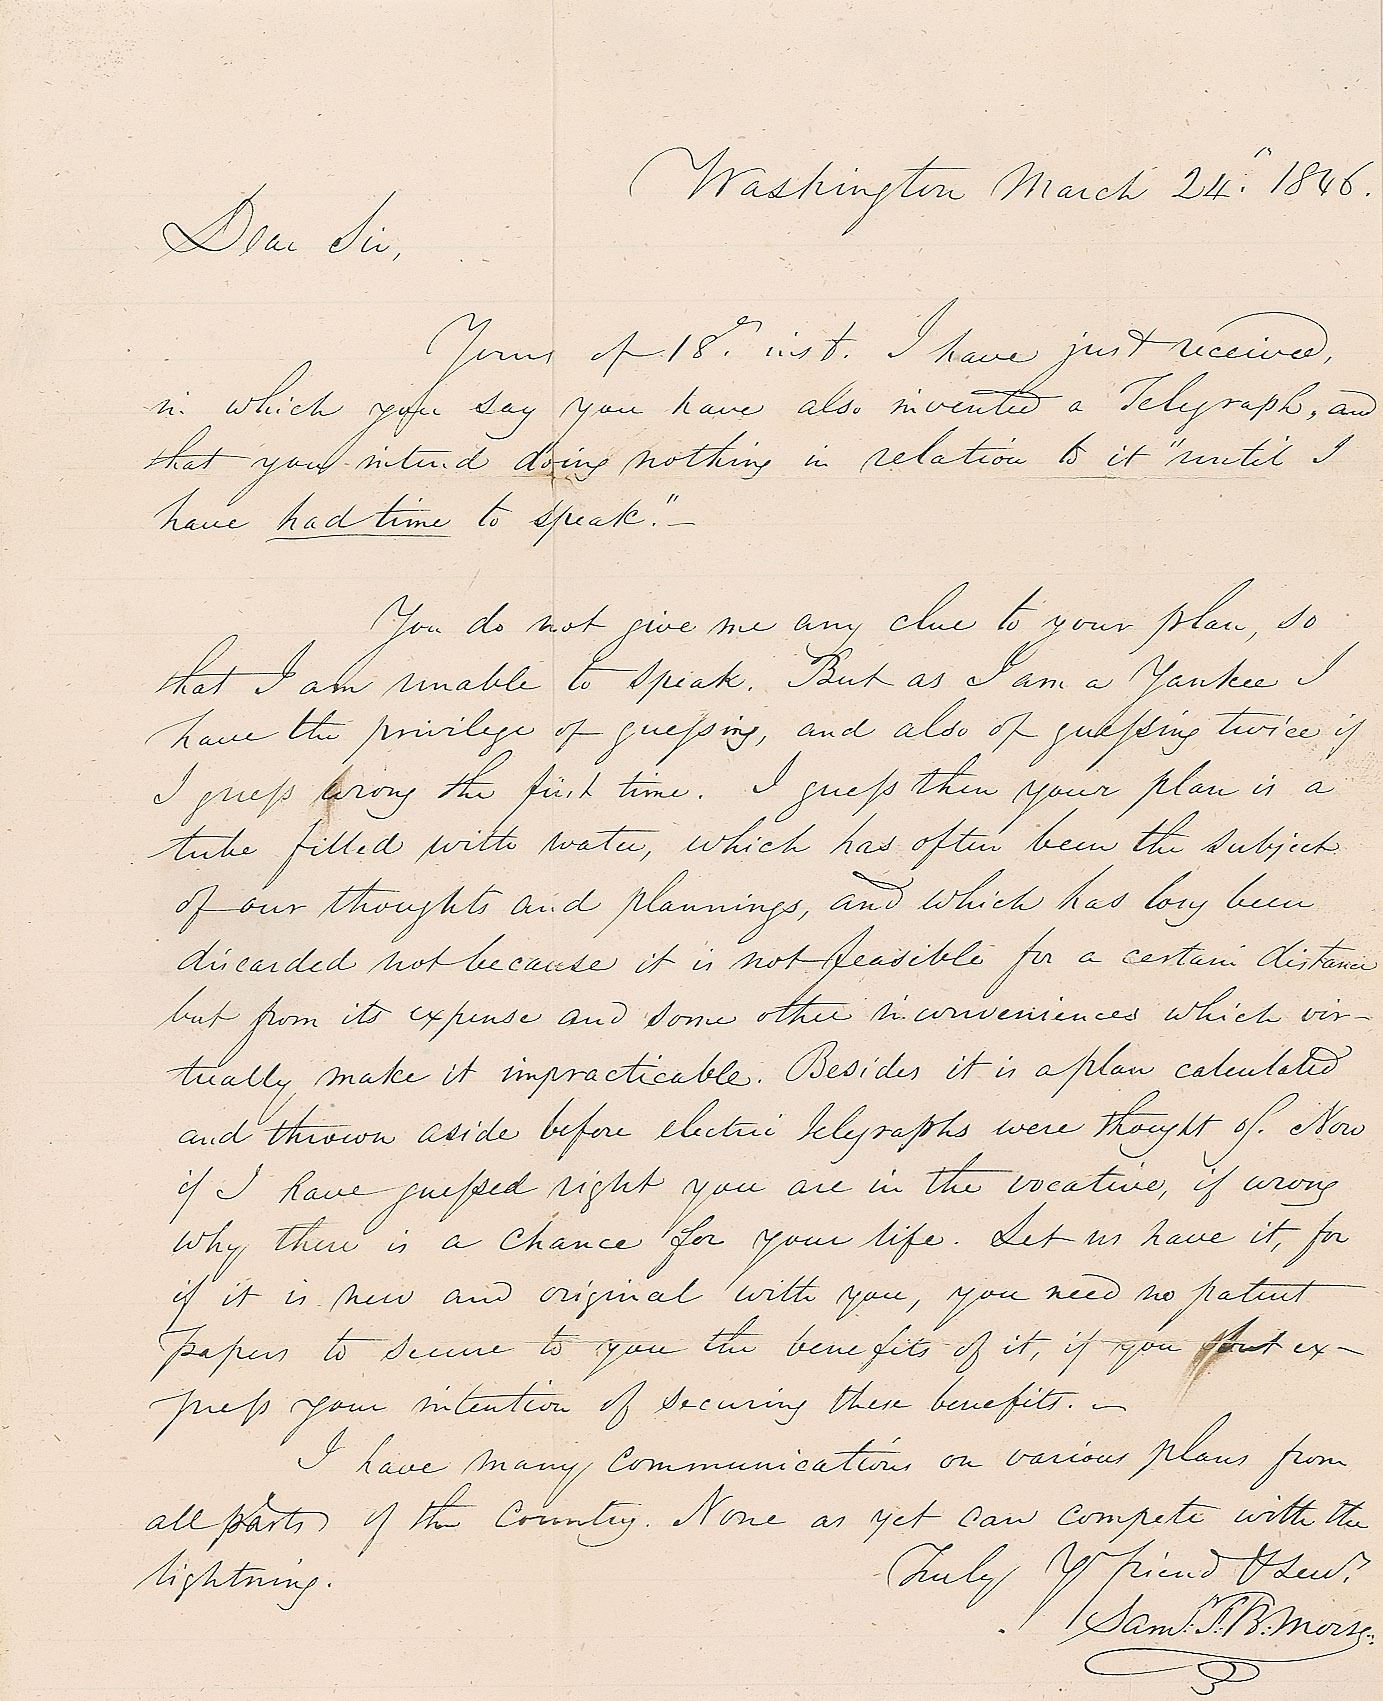 Washington March 24." 1846.
Dear Sir,
Yours of 18." inst. I have just received,
in which you say you have also invented a Telegraph, and
that you intend doing nothing in relation to it "until I
have had time to speak." —
You do not give me any clue to your plan, so
that I am unable to speak. But as I am a Yankee I
have the privilege of guessing, and also of guessing twice if
I guess wrong the first time. I guess then your plan is a
tube filled with water, which has often been the subject
of our thoughts and plannings, and which has long been
discarded not because it is not feasible for a certain distance
but from its expense and some other inconveniences which vir-
tually make it impracticable. Besides it is a plan calculated
and thrown aside before electric telegraphs were thought of. Now
if I have guessed right you are in the vocative, if wrong
why there is a chance for your life. Let us have it, for
if it is new and original with you, you need no patent
papers to secure to you the benefits of it, if you but ex-
press your intention of securing these benefits. —
I have many communications on various plans from
all parts of the Country. None as yet can compete with the
lightning.
Truly Yr friend & Servt
Saml. F. B. Morse.